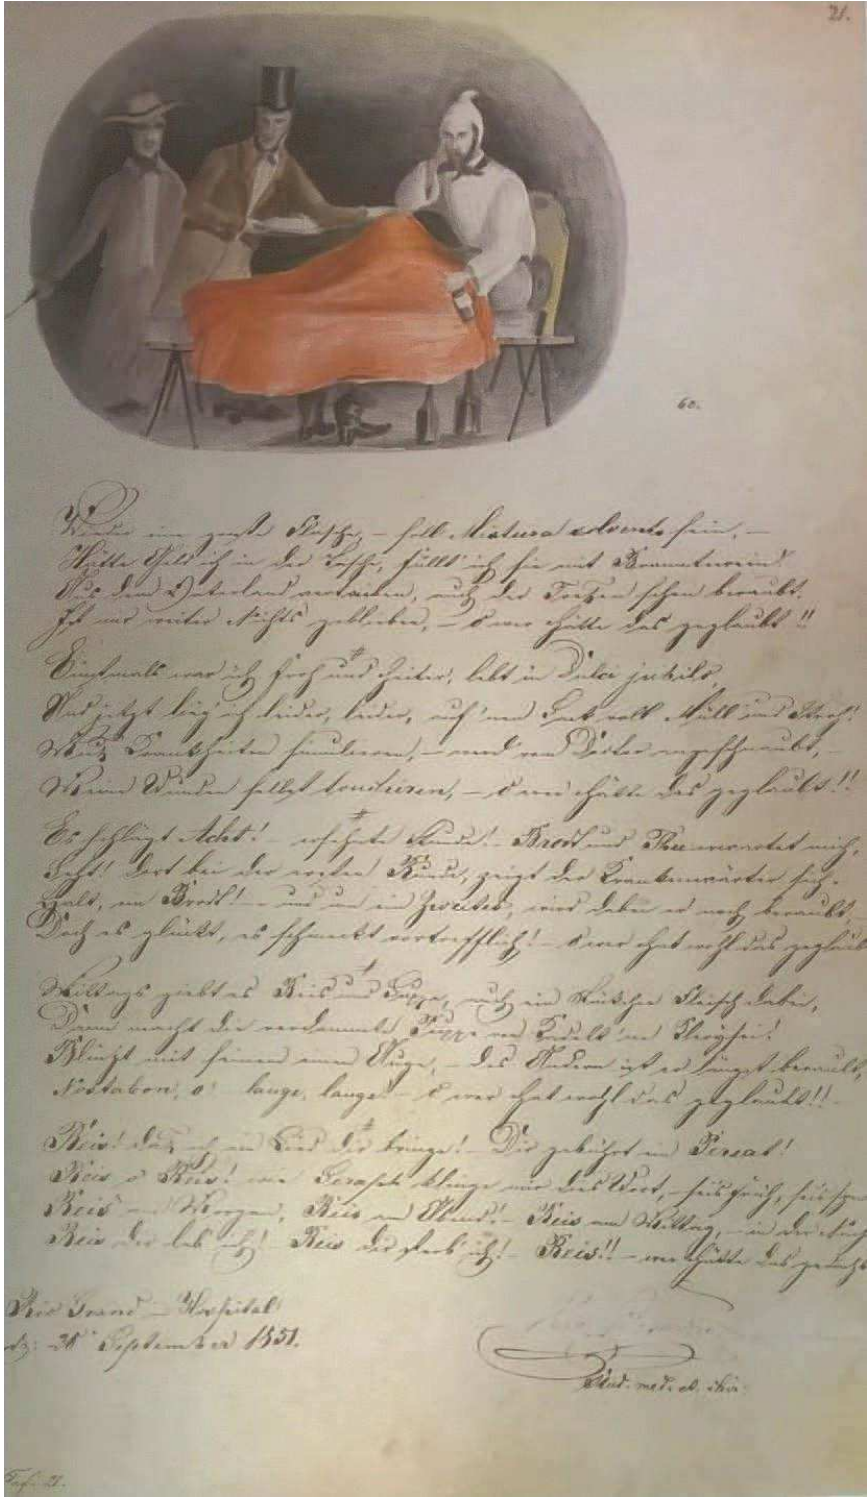 21.
60.
Wieder eine große Flasche, – soll Mixtura solvente sein, –
Hätte Geld ich in der Tasche, füllt' ich sie mit Branntwein!
Aus dem Vaterland vertrieben, auch der Treßen schon beraubt,
Ist mir weiter Nichts geblieben, – O wer hätte das geglaubt!!
Einstmals war ich froh und heiter, lebt in Dulci jubilo,
Und jetzt lieg ich leider, leider, auf 'nem Sack voll Müll und Stroh!
Muß Krankheiten simulieren, – werd' vom Doctor angeschnaubt, –
Meine Wunden selbst touchiren, – O wer hätte das geglaubt!!
Es schlägt Acht! – ersehnte Stunde! – Brodt und Thee erwartet mich,
Seht! dort bei der ersten Runde, zeigt der Krankenwärter sich.
Halt, ein Brodt! – und ein Zweites, wird dabei er noch beraubt,
Doch es glückt, es schmeckt vortrefflich! – O wer hat wohl das geglaubt
Mittags giebt es Reis und Suppe, auch ein Stückchen Fleisch dabei,
Dann macht die verdammte
Blinzt mit seinem einen Auge, – des Andern ist er längst beraubt,
o! lange, lange! – O wer hat wohl das geglaubt!! –
Reis! daß ich ein Lied dir bringe! – Dir gebührt ein Pereat!
Reis o Reis! wie klinge mir dies Wort, – sei's früh, sei's spät
Reis am Morgen, Reis am Abend! – Reis am Mittag, – in der Nacht
Reis dir leb ich! – Reis dir sterb' ich! – Reis!! – wer hätte das
Rio Grand – Hospital
28 September 1851.
Stud. med. et chir.
Taf. 21.